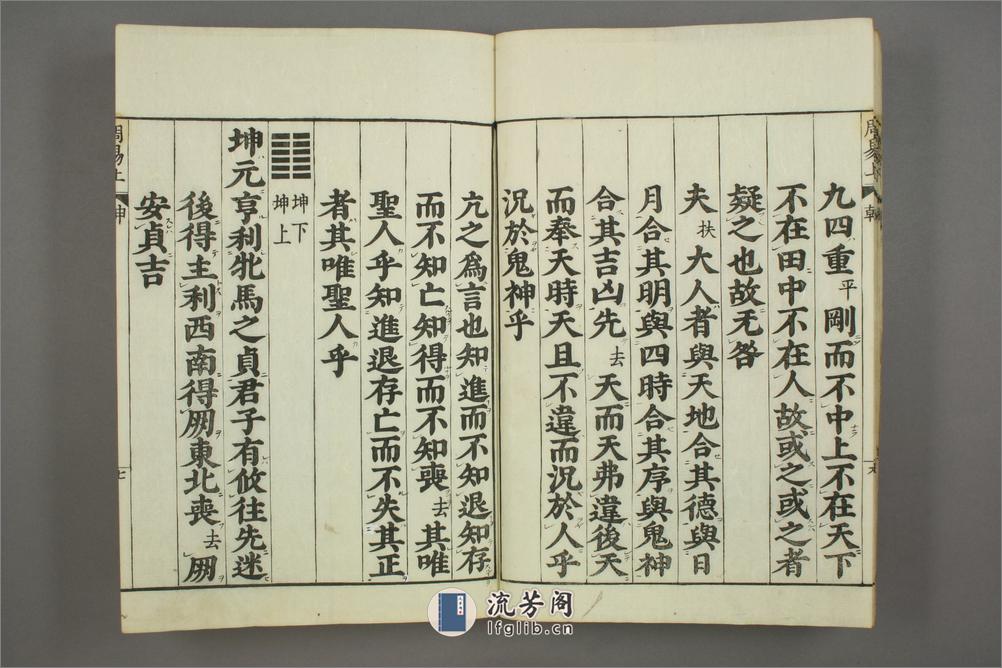 周易上
乾
九四重平剛而不中上不在天下
不在田中不在人故或之或之者
疑之也故无咎
夫扶大人者與天地合其德與日
月合其明與四時合其序與鬼神
合其吉凶先去天而天弗違後天
而奉天時天且不違而況於人乎
況於鬼神乎
亢之爲言也知進而不知退知存
而不知亡知得而不知喪去其唯
聖人乎知進退存亡而不失其正
者其唯聖人乎
坤下
坤上
坤元亨利牝馬之貞君子有攸往先迷
後得主利西南得朋東北喪去朋
安貞吉
周易上
坤
七
流芳阁
lfglib.cn